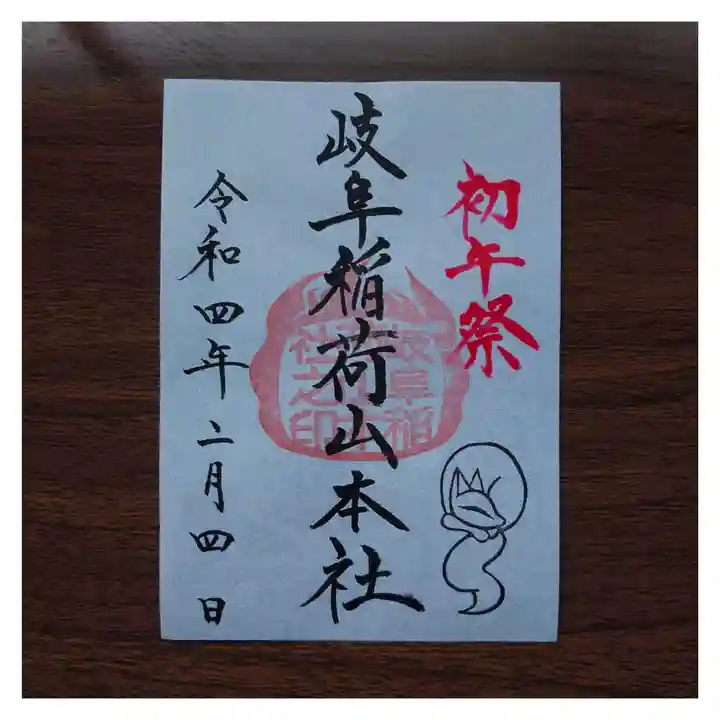 初午祭
岐阜稲荷山本社
令和四年二月四日